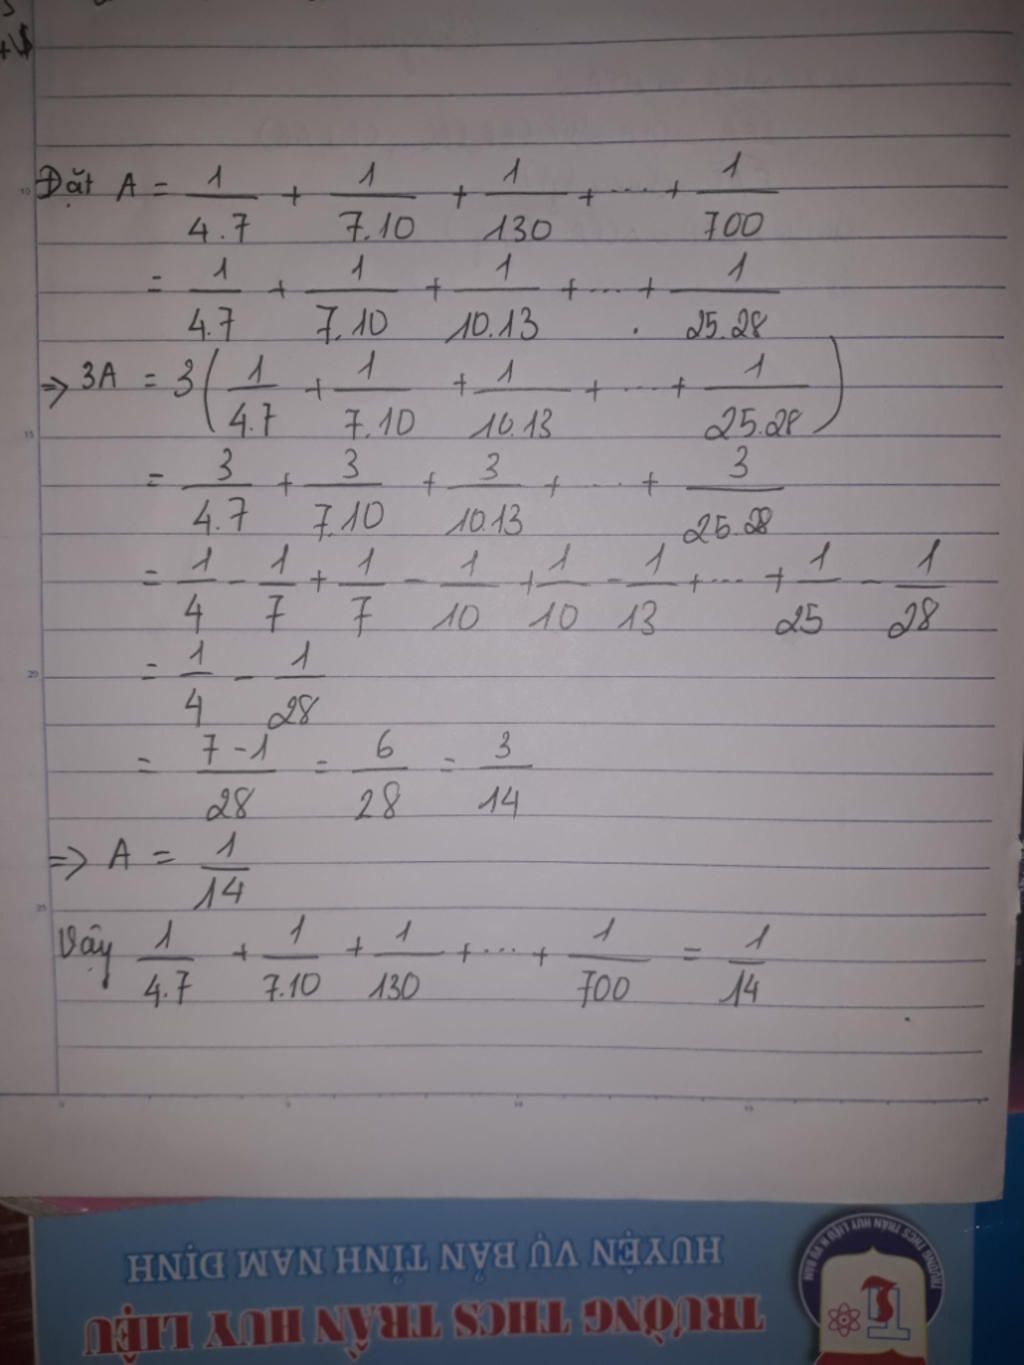 Đặt A = 1/4.7 + 1/7.10 + 1/130 + ... + 1/700
= 1/4.7 + 1/7.10 + 1/10.13 + ... + 1/25.28
=> 3A = 3(1/4.7 + 1/7.10 + 1/10.13 + ... + 1/25.28)
= 3/4.7 + 3/7.10 + 3/10.13 + ... + 3/25.28
= 1/4 - 1/7 + 1/7 - 1/10 + 1/10 - 1/13 + ... + 1/25 - 1/28
= 1/4 - 1/28
= 7-1/28 = 6/28 = 3/14
=> A = 1/14
Vậy 1/4.7 + 1/7.10 + 1/130 + ... + 1/700 = 1/14
HUYỆN VỤ BẢN TỈNH NAM ĐỊNH
TRƯỜNG THCS TRẦN HUY LIỆU